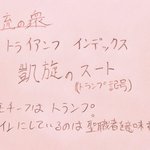 充の楽
トライアンフ インデックス
凱旋のスート
(トランプ記号)
モチーフは トランプ。
イルにしているのは 聖職者を意味す